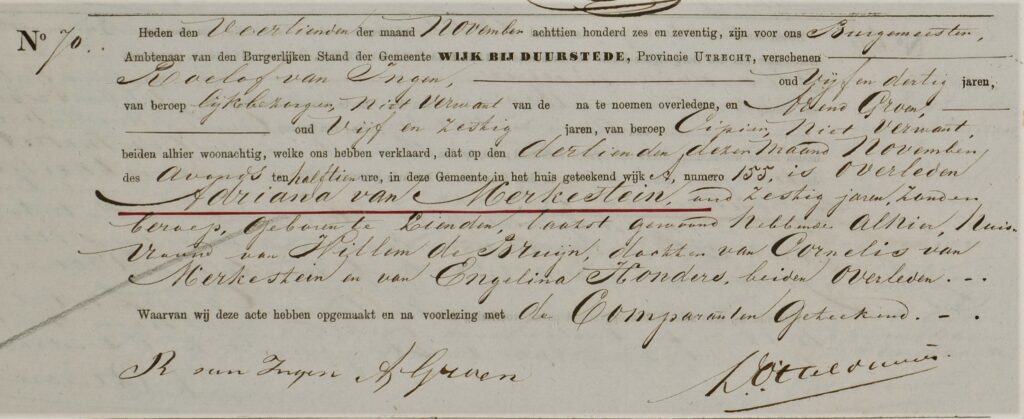 No 70. Heden den Veertienden der maand November achttien honderd zes en zeventig, zijn voor ons Burgemeester,
Ambtenaar van den Burgerlijken Stand der Gemeente WIJK BIJ DUURSTEDE, Provincie UTRECHT, verschenen
Roelof van Ingen, oud Vijf en dertig jaren,
van beroep lijkbezorger, niet verwant van de na te noemen overledene, en Arend Groen,
oud Vijf en Zestig jaren, van beroep Cipier, niet verwant,
beiden alhier woonachtig, welke ons hebben verklaard, dat op den dertienden dezer maand November
des avonds ten half tien ure, in deze Gemeente in het huis geteekend wijk A, numero 155, is overleden
Adriana van Merkestein, oud Zestig jaren, Zonder
beroep, geboren te Lienden, laatst gewoond hebbende alhier, Huis-
vrouw van Willem de Bruijn, dochter van Cornelis van
Merkestein en van Engelina Honders, beiden overleden. - -
Waarvan wij deze acte hebben opgemaakt en na voorlezing met de Comparanten Geteekend. - -
R van Ingen A Groen